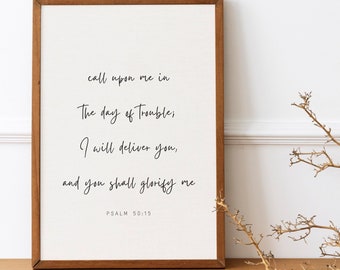 call upon me in
the day of trouble;
I will deliver you,
and you shall glorify me
PSALM 50:15